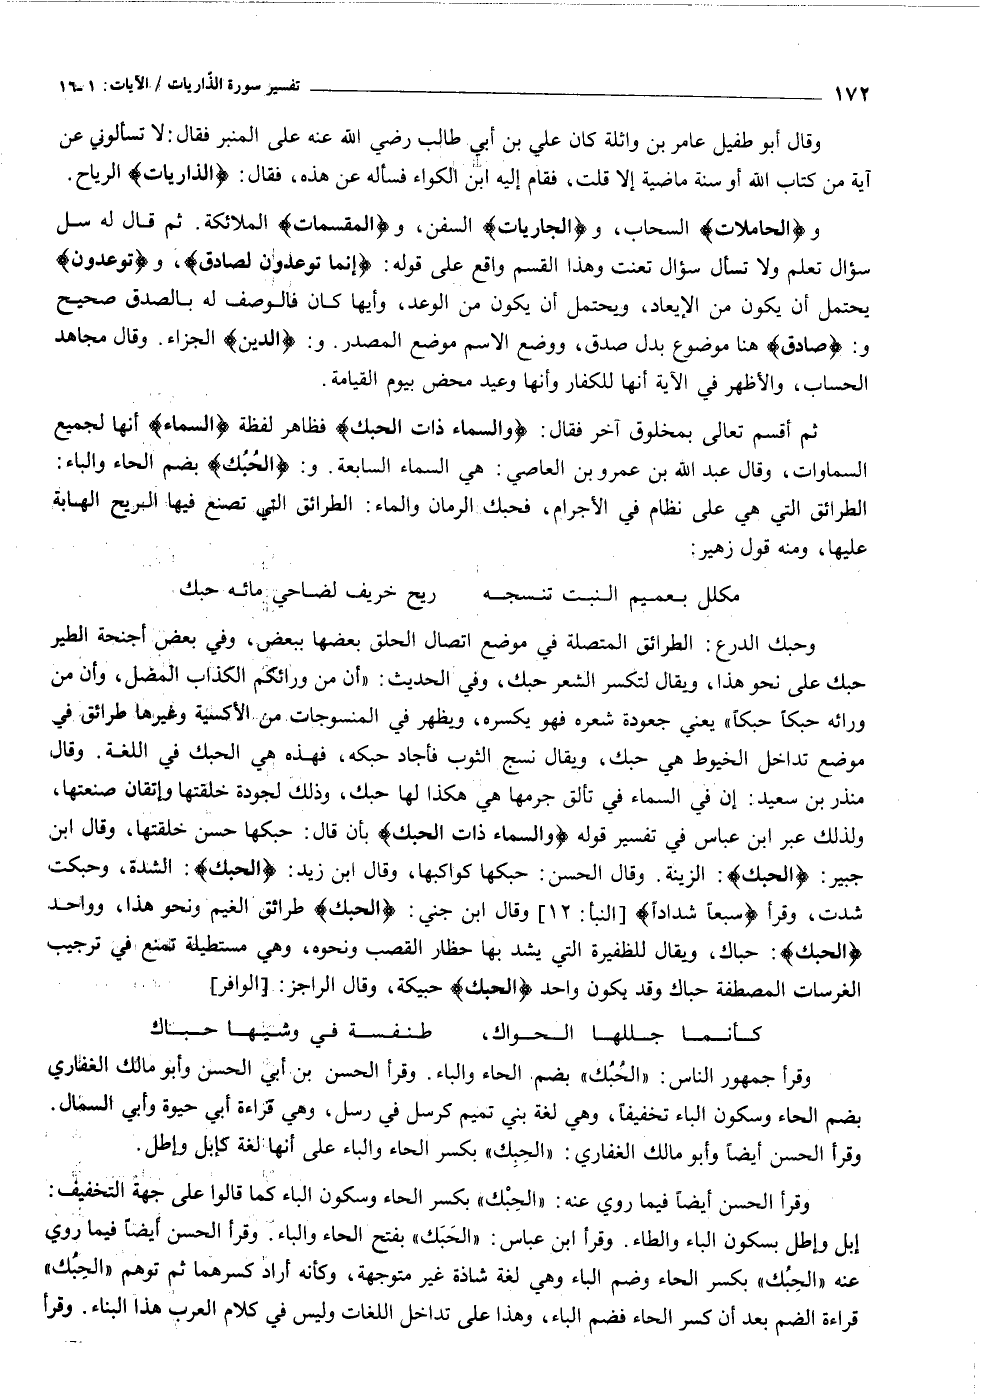 ١٧٢ تفسير سورة الذّاريات / الآيات: ١-١٦
وقال أبو طفيل عامر بن واثلة كان علي بن أبي طالب رضي الله عنه على المنبر فقال: لا تسألوني عن
آية من كتاب الله أو سنة ماضية إلا قلت، فقام إليه ابن الكواء فسأله عن هذه، فقال: ﴿الذاريات﴾ الرياح.
و﴿الحاملات﴾ السحاب، و﴿الجاريات﴾ السفن، و﴿المقسمات﴾ الملائكة. ثم قال له سل
سؤال تعلم ولا تسأل سؤال تعنت وهذا القسم واقع على قوله: ﴿إنما توعدون لصادق﴾، و﴿توعدون﴾
يحتمل أن يكون من الإيعاد، ويحتمل أن يكون من الوعد، وأيها كان فالوصف له بالصدق صحيح
و: ﴿صادق﴾ هنا موضوع بدل صدق، ووضع الاسم موضع المصدر. و: ﴿الدين﴾ الجزاء. وقال مجاهد
الحساب، والأظهر في الآية أنها للكفار وأنها وعيد محض بيوم القيامة.
ثم أقسم تعالى بمخلوق آخر فقال: ﴿والسماء ذات الحبك﴾ فظاهر لفظة ﴿السماء﴾ أنها لجميع
السماوات، وقال عبد الله بن عمرو بن العاصي: هي السماء السابعة. و: ﴿الحُبُك﴾ بضم الحاء والباء:
الطرائق التي هي على نظام في الأجرام، فحبك الرمان والماء: الطرائق التي تصنع فيها الريح الهابة
عليها، ومنه قول زهير:
مكلل بعميم النبت تنسجه ريح خريف لضاحي مائه حبك
وحبك الدرع: الطرائق المتصلة في موضع اتصال الحلق بعضها ببعض، وفي بعض أجنحة الطير
حبك على نحو هذا، ويقال لتكسر الشعر حبك، وفي الحديث: «أن من ورائكم الكذاب المضل، وأن من
ورائه حبكاً حبكاً» يعني جعودة شعره فهو يكسره، ويظهر في المنسوجات من الأكسية وغيرها طرائق في
موضع تداخل الخيوط هي حبك، ويقال نسج الثوب فأجاد حبكه، فهذه هي الحبك في اللغة. وقال
منذر بن سعيد: إن في السماء في تألق جرمها هي هكذا لها حبك، وذلك لجودة خلقتها وإتقان صنعتها،
ولذلك عبر ابن عباس في تفسير قوله ﴿والسماء ذات الحبك﴾ بأن قال: حبكها حسن خلقتها، وقال ابن
جبير: ﴿الحبك﴾: الزينة. وقال الحسن: حبكها كواكبها، وقال ابن زيد: ﴿الحبك﴾: الشدة، وحبكت
شدت، وقرأ ﴿سبعاً شداداً﴾ [النبأ: ١٢] وقال ابن جني: ﴿الحبك﴾ طرائق الغيم ونحو هذا، وواحد
﴿الحبك﴾: حباك، ويقال للظفيرة التي يشد بها حظار القصب ونحوه، وهي مستطيلة تمنع في ترجيب
الغرسات المصطفة حباك وقد يكون واحد ﴿الحبك﴾ حبيكة، وقال الراجز: [الوافر]
كأنما جللها الحواك، طنفسة في وشيها حباك
وقرأ جمهور الناس: «الحُبُك» بضم الحاء والباء. وقرأ الحسن بن أبي الحسن وأبو مالك الغفاري
بضم الحاء وسكون الباء تخفيفاً، وهي لغة بني تميم كرسل في رسل، وهي قراءة أبي حيوة وأبي السمال.
وقرأ الحسن أيضاً وأبو مالك الغفاري: «الحِبِك» بكسر الحاء والباء على أنها لغة كإبل وإطل.
وقرأ الحسن أيضاً فيما روي عنه: «الحِبْك» بكسر الحاء وسكون الباء كما قالوا على جهة التخفيف:
إبل وإطل بسكون الباء والطاء. وقرأ ابن عباس: «الحَبَك» بفتح الحاء والباء. وقرأ الحسن أيضاً فيما روي
عنه «الحِبُك» بكسر الحاء وضم الباء وهي لغة شاذة غير متوجهة، وكأنه أراد كسرهما ثم توهم «الحِبُك»
قراءة الضم بعد أن كسر الحاء فضم الباء، وهذا على تداخل اللغات وليس في كلام العرب هذا البناء. وقرأ